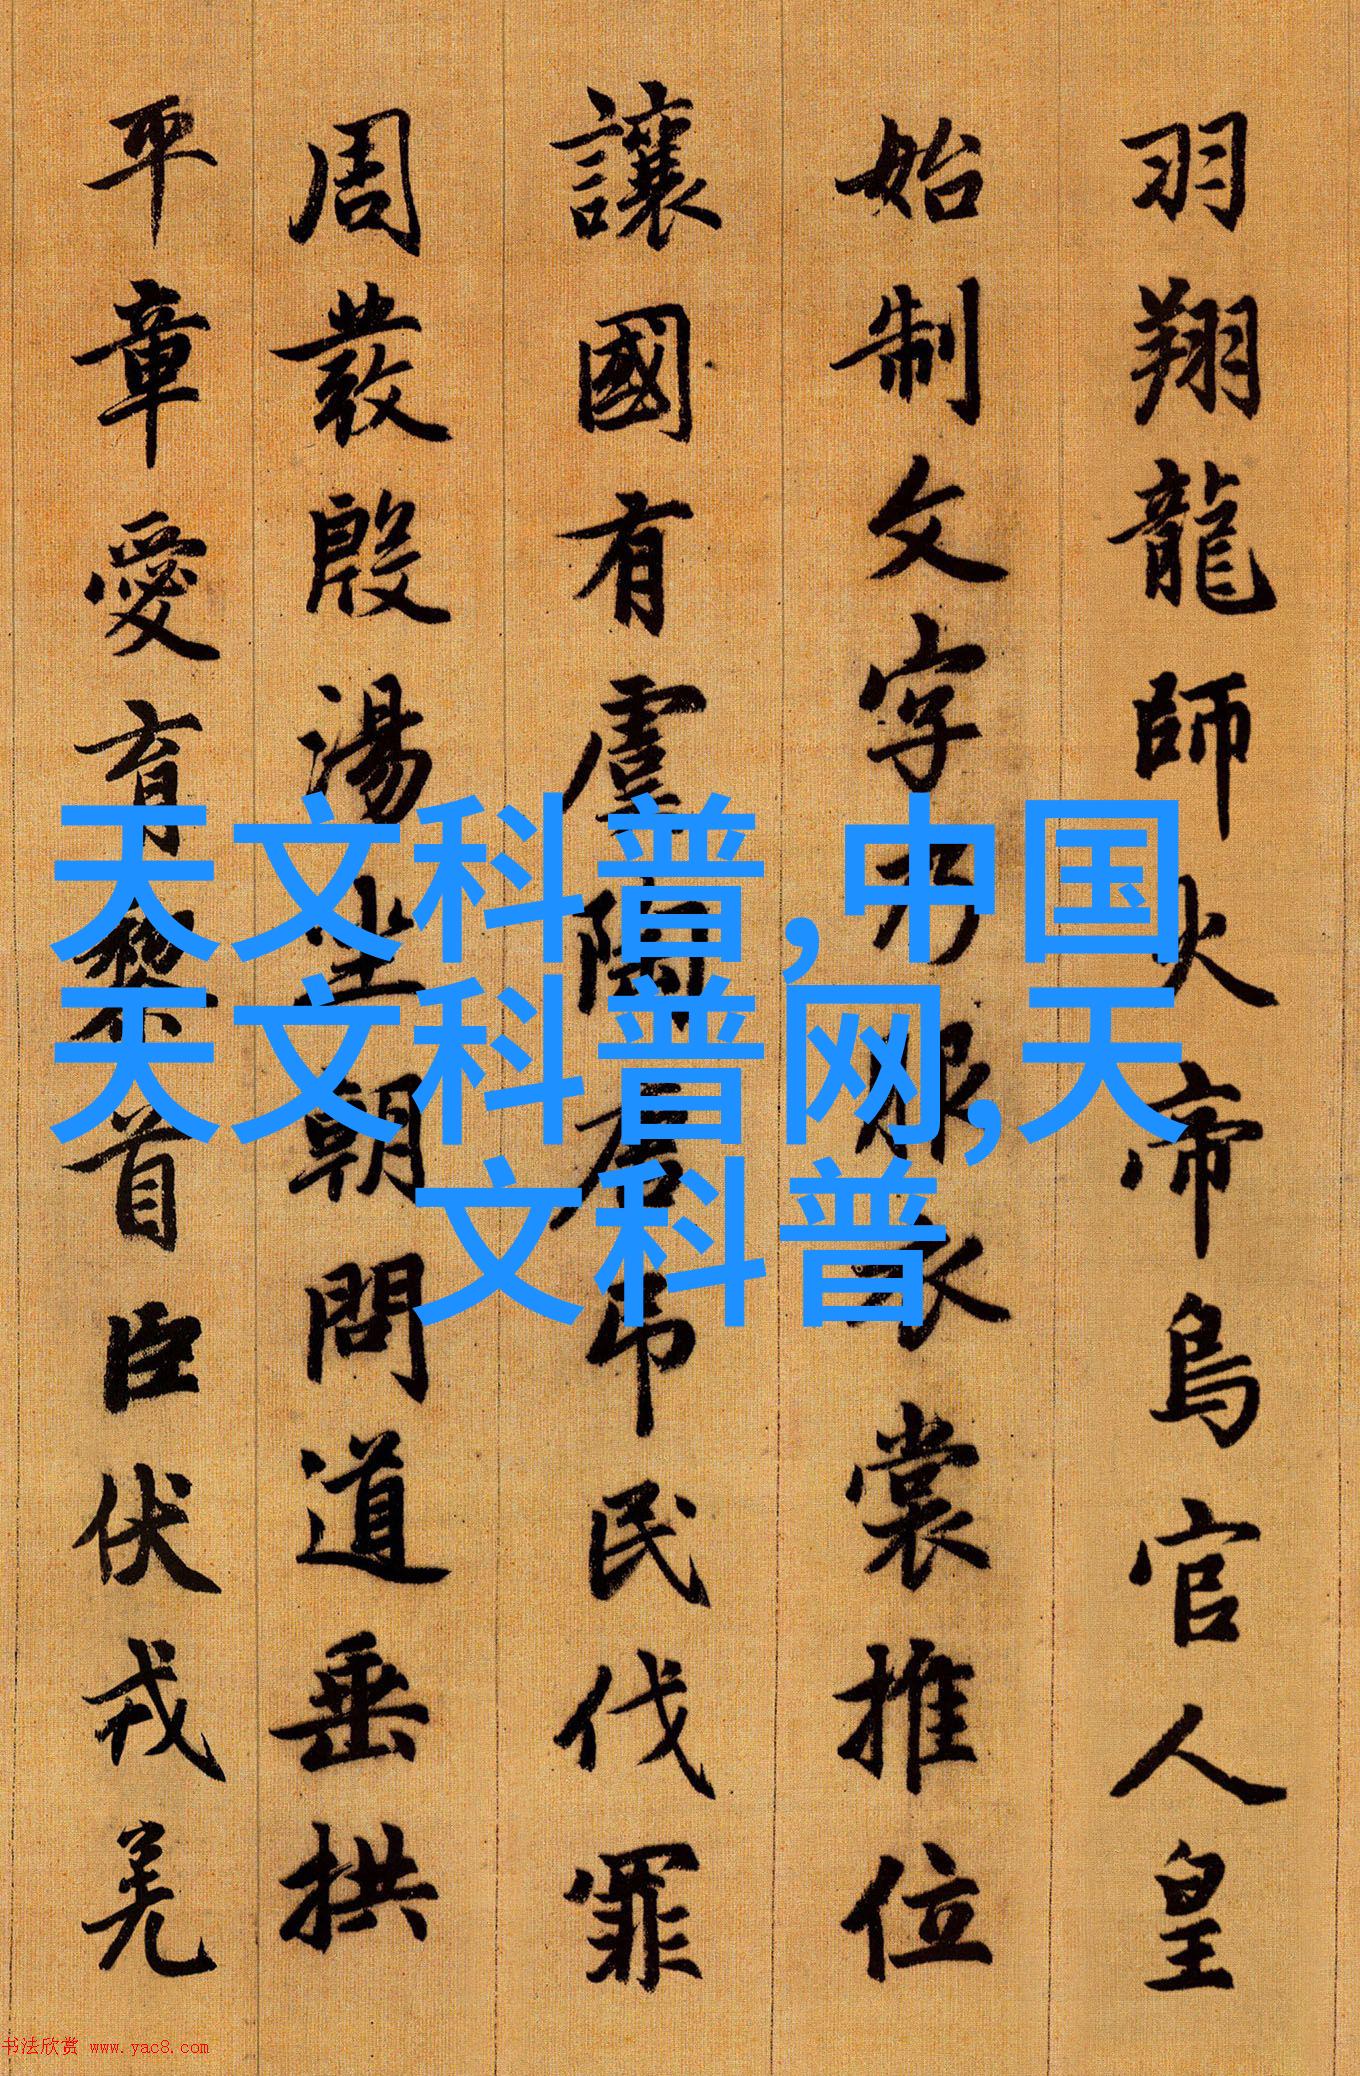 羽翔龍師火帝鳥官人皇
始制文字乃服衣裳推位
讓國有虞陶唐弔民伐罪
周發殷湯坐朝問道垂拱
平章愛育黎首臣伏戎羌
天文科普,中国
天文科普网,天
文科普
书法欣赏 www.yac8.com